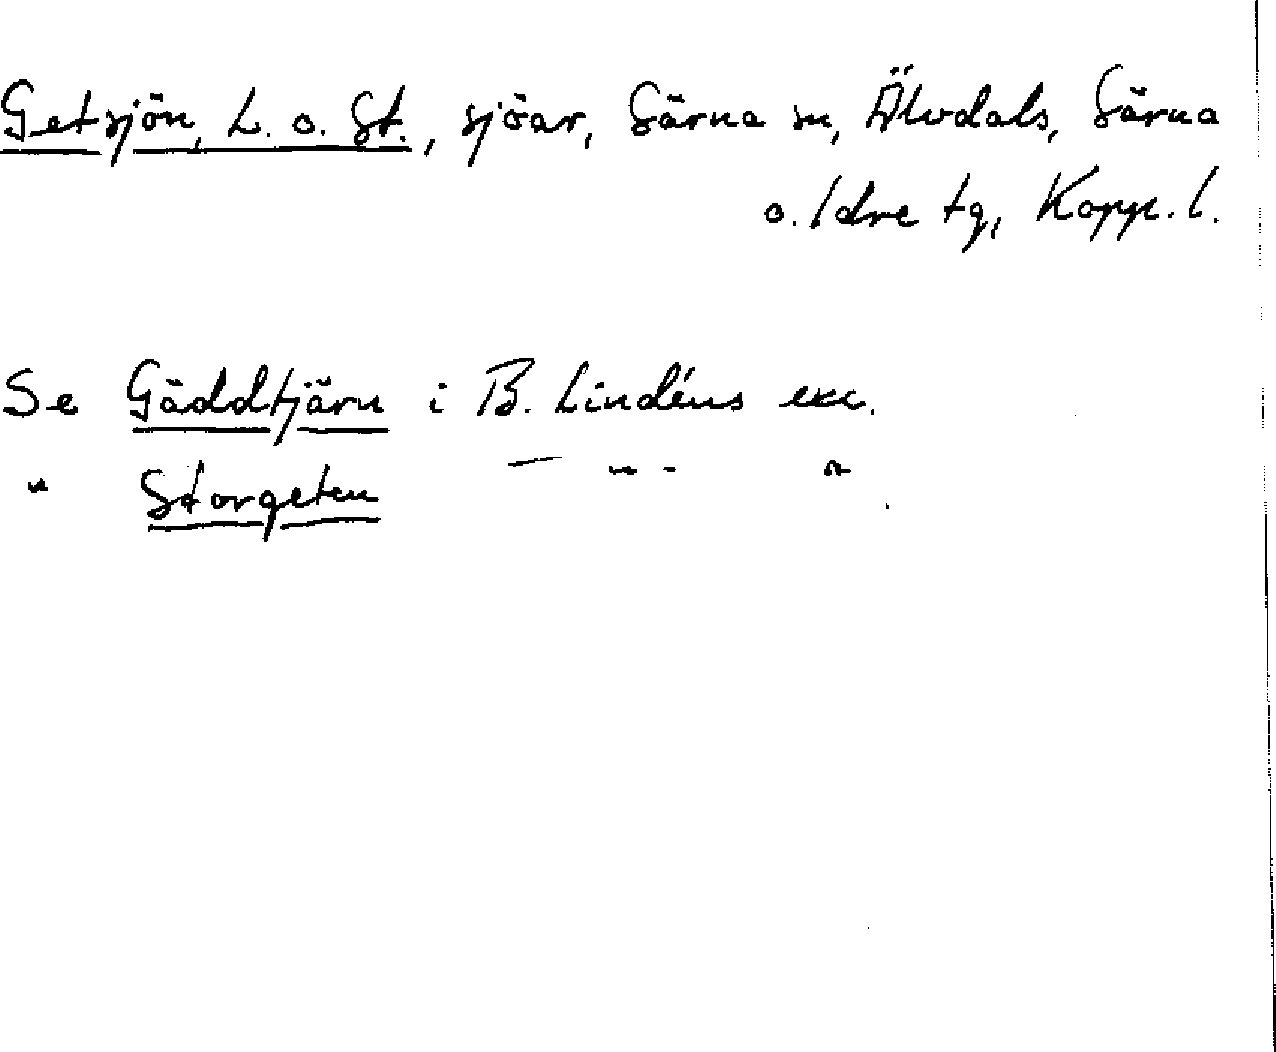 Getsjön, L. o. St., sjöar, Särna sn, Älvdals, Särna
o. Idre tg, Kopp. l.
Se Gäddtjärn i B. Lindéns exc.
" Storgeten — " - "